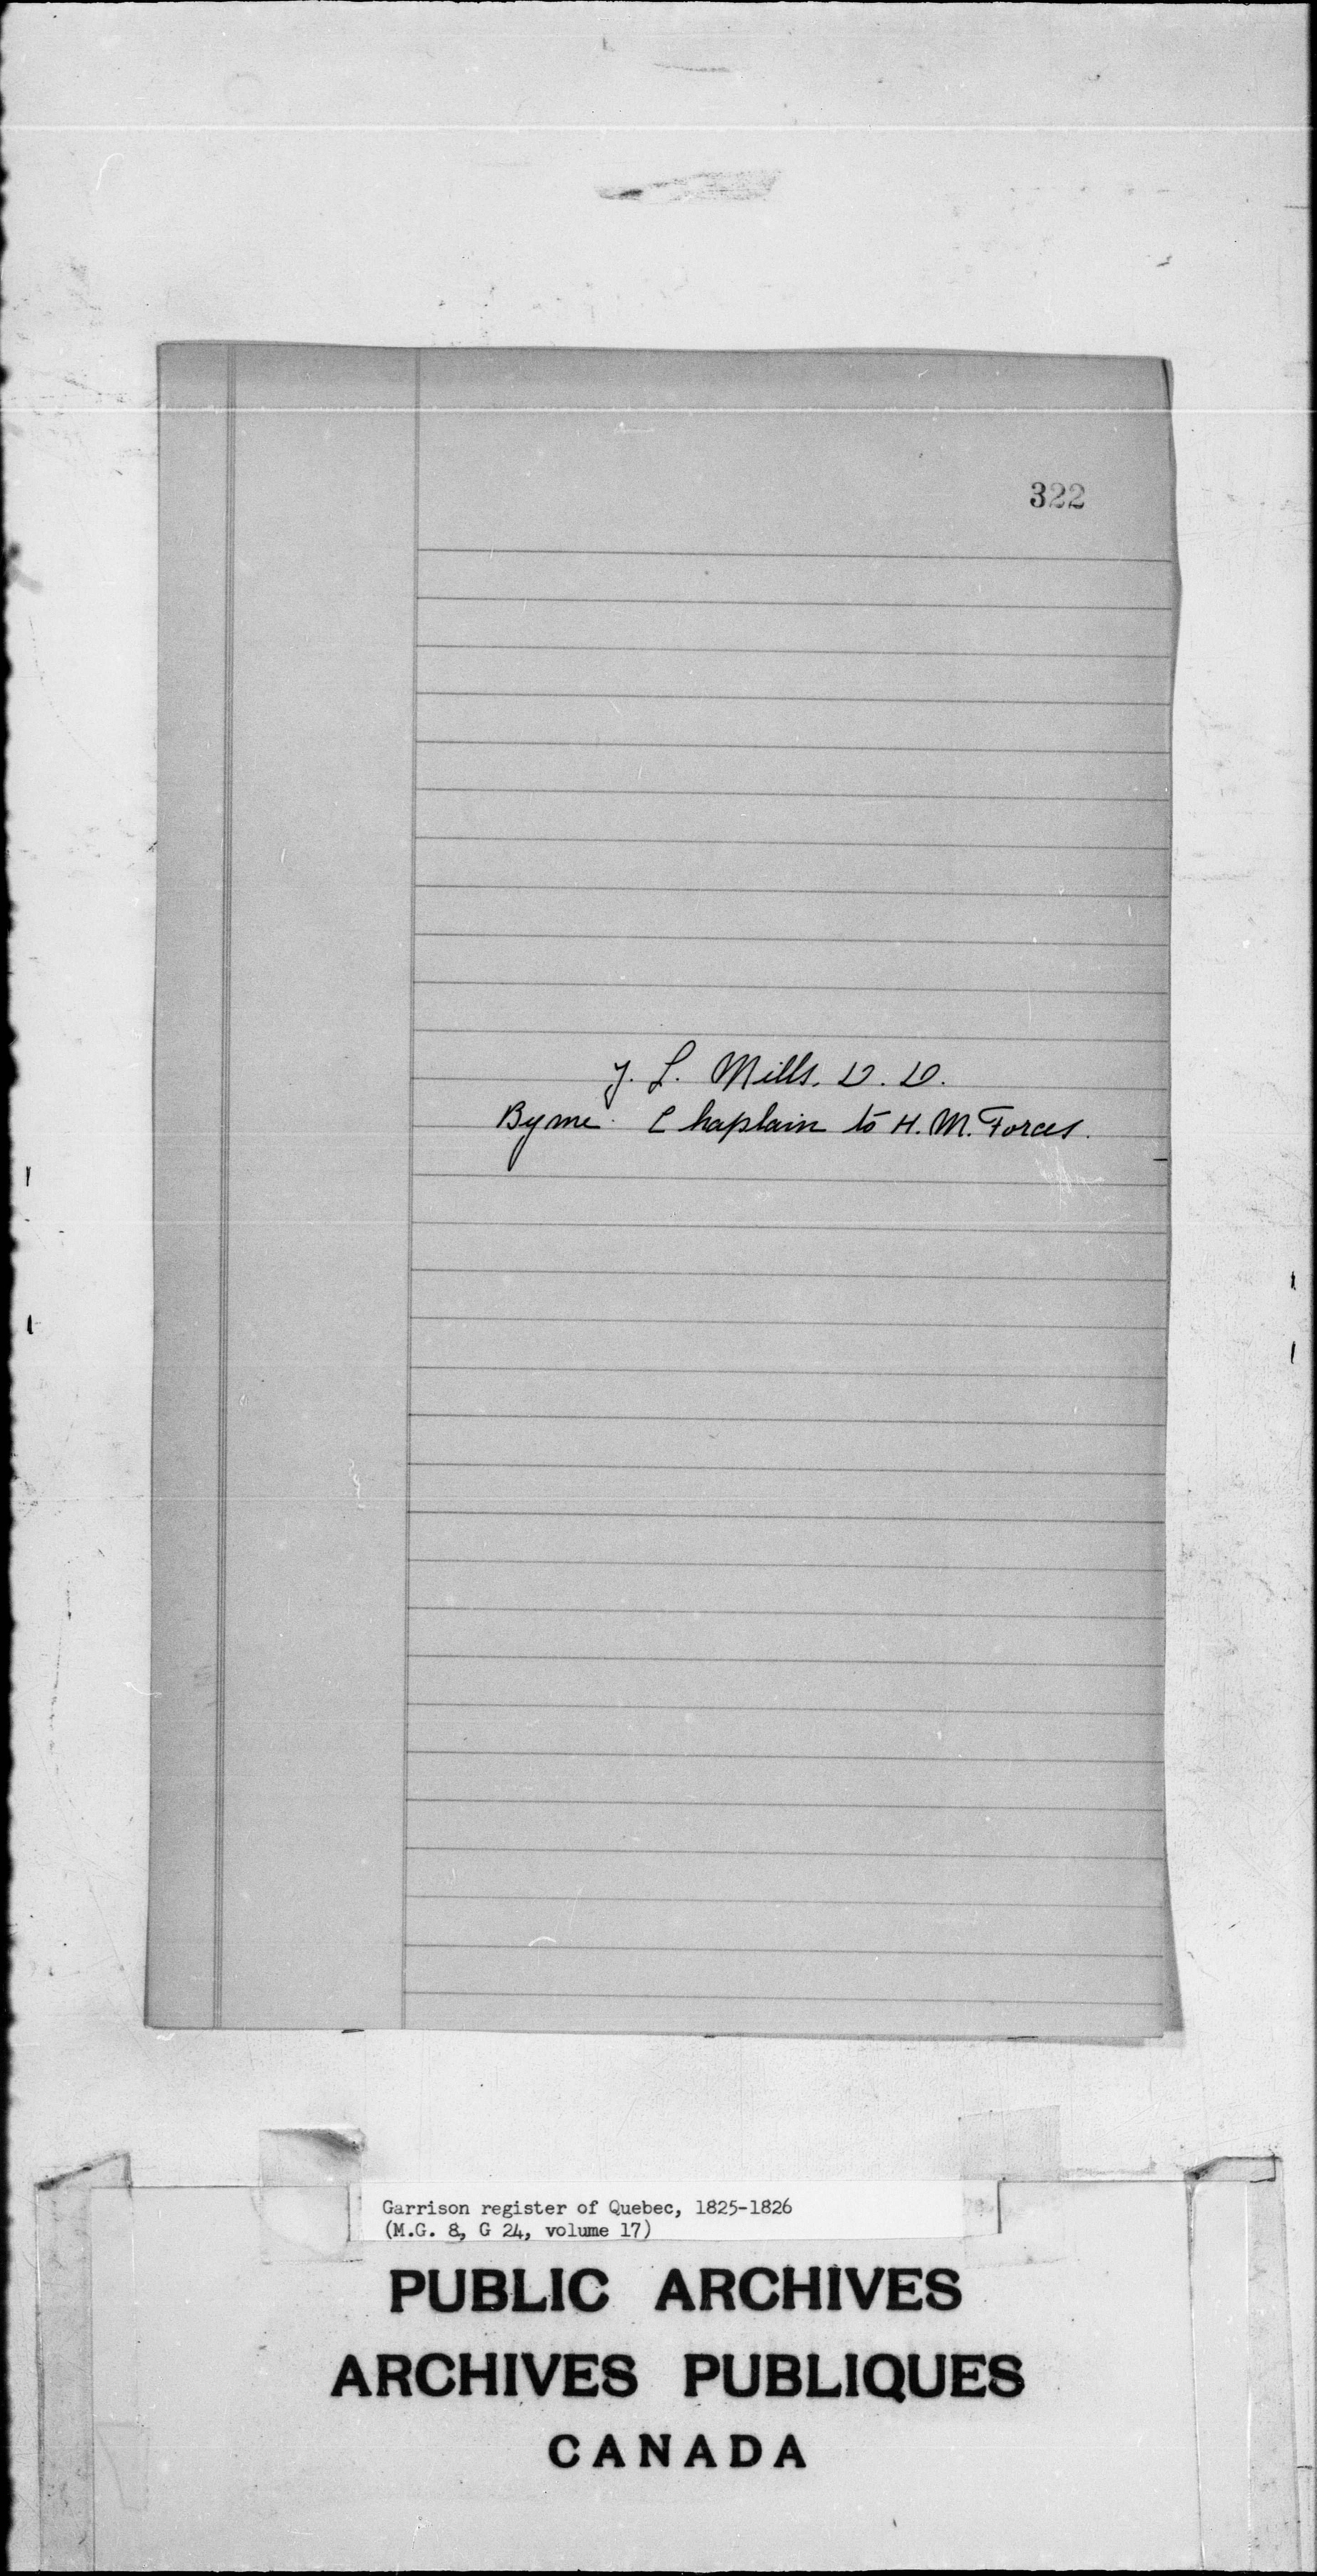 322
J. L. Mills. D. D.
By me. Chaplain to H. M. Forces.
Garrison register of Quebec, 1825-1826
(M.G. 8, G 24, volume 17)
PUBLIC ARCHIVES
ARCHIVES PUBLIQUES
CANADA